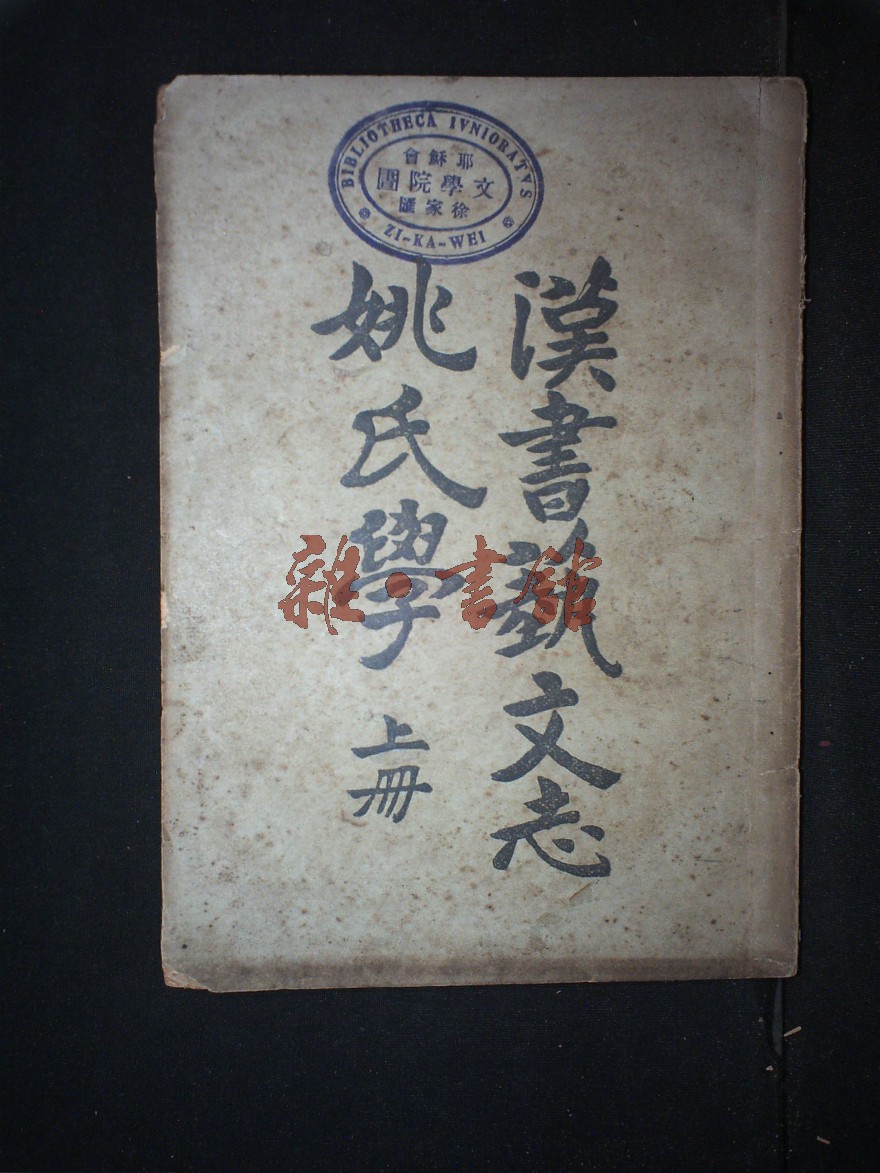 BIBLIOTHECA IVNIORATVS
耶穌會
文學院圕
徐家匯
ZI-KA-WEI
漢書藝文志
姚氏學 上冊
雜·書館